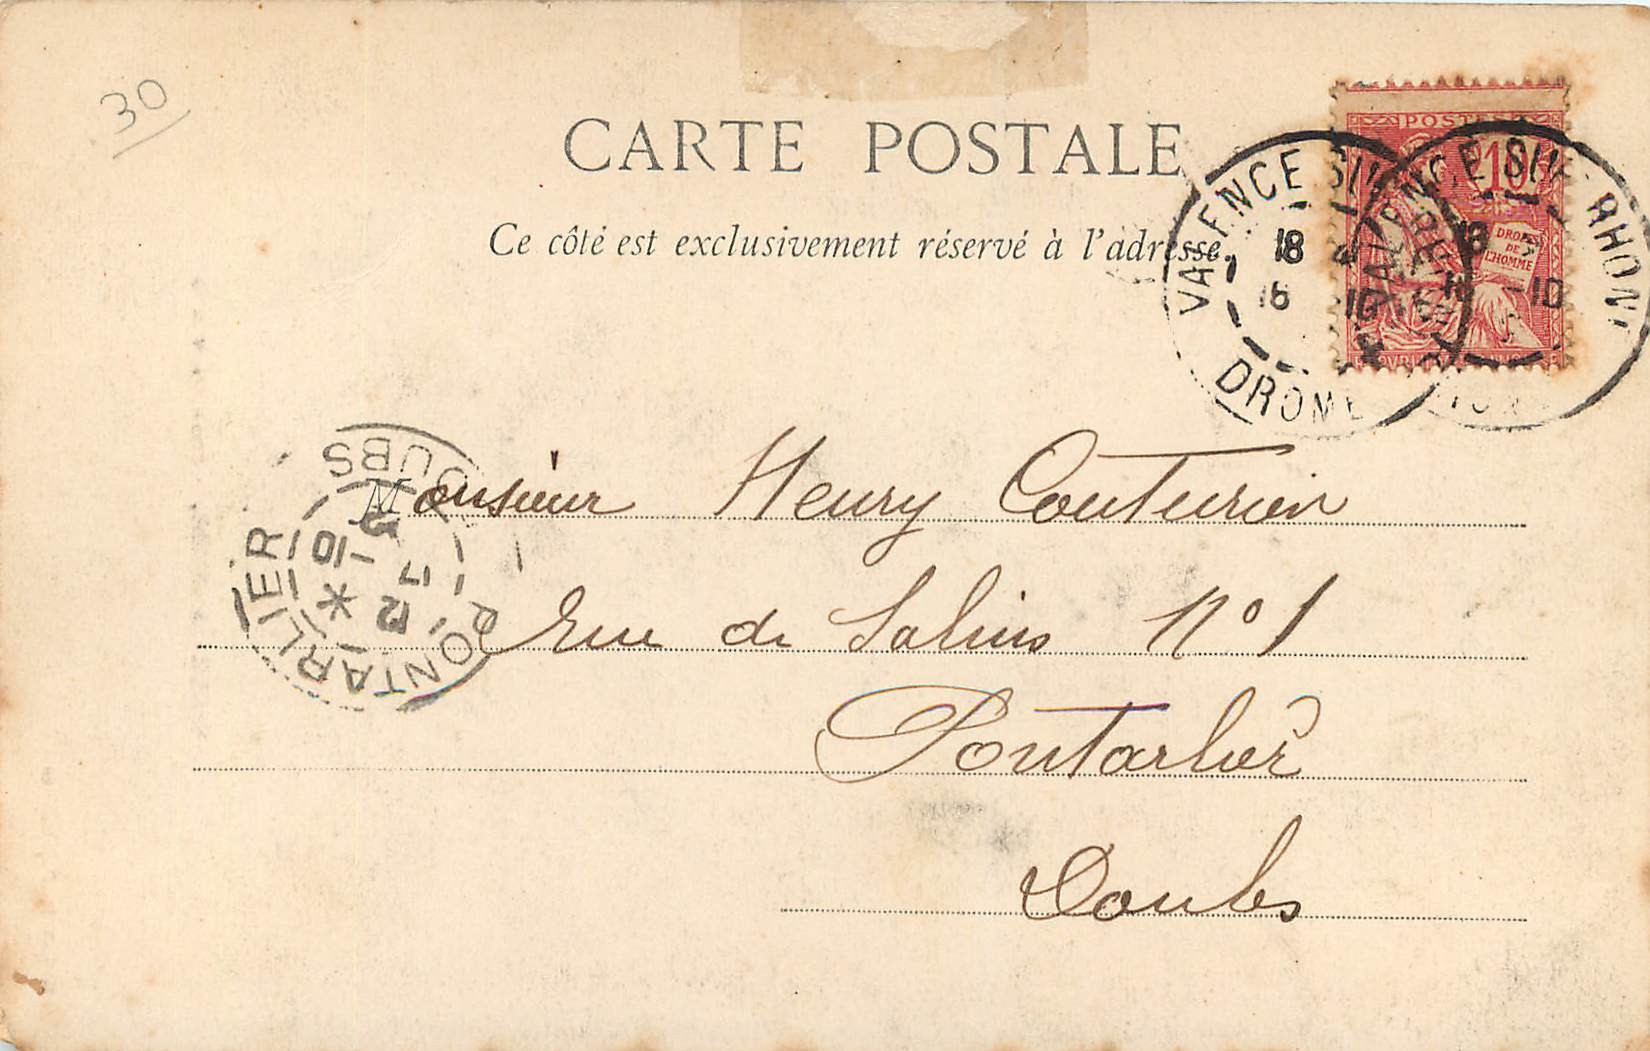 30
CARTE POSTALE
Ce côté est exclusivement réservé à l'adresse
POSTES
10
DROITS
DE
L'HOMME
VALENCE SUR RHONE
18
16 10
DROME
VALENCE SUR RHONE
18
10
PONTARLIER
DOUBS
12
17 -10
Monsieur Henry Couturier
Rue de Salins N° 1
Pontarlier
Doubs